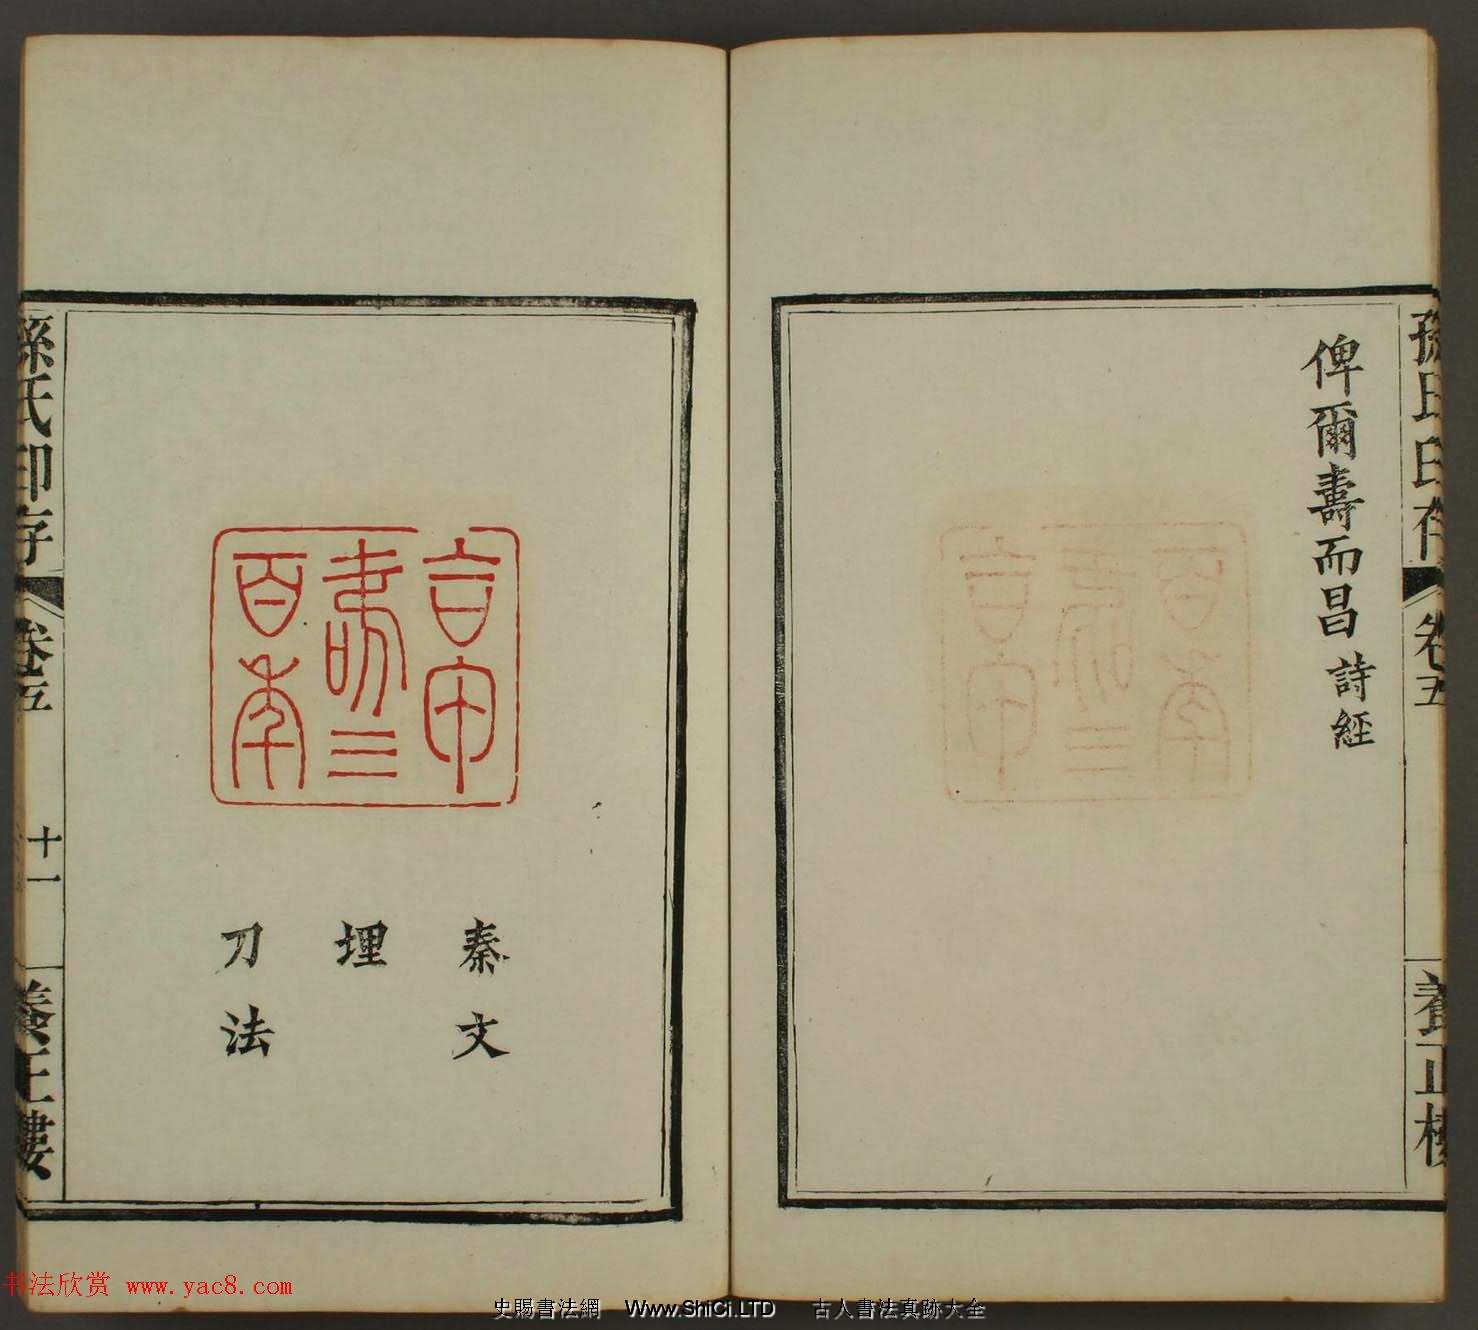 孫氏印存
卷五
養正樓
俾爾壽而昌 詩經
言甲
壽三
百年
秦文
埋
刀法
孫氏印存
卷五
十一
養正樓
书法欣赏 www.yac8.com
史賜書法網 Www.ShiCi.LTD 古人書法真跡大全